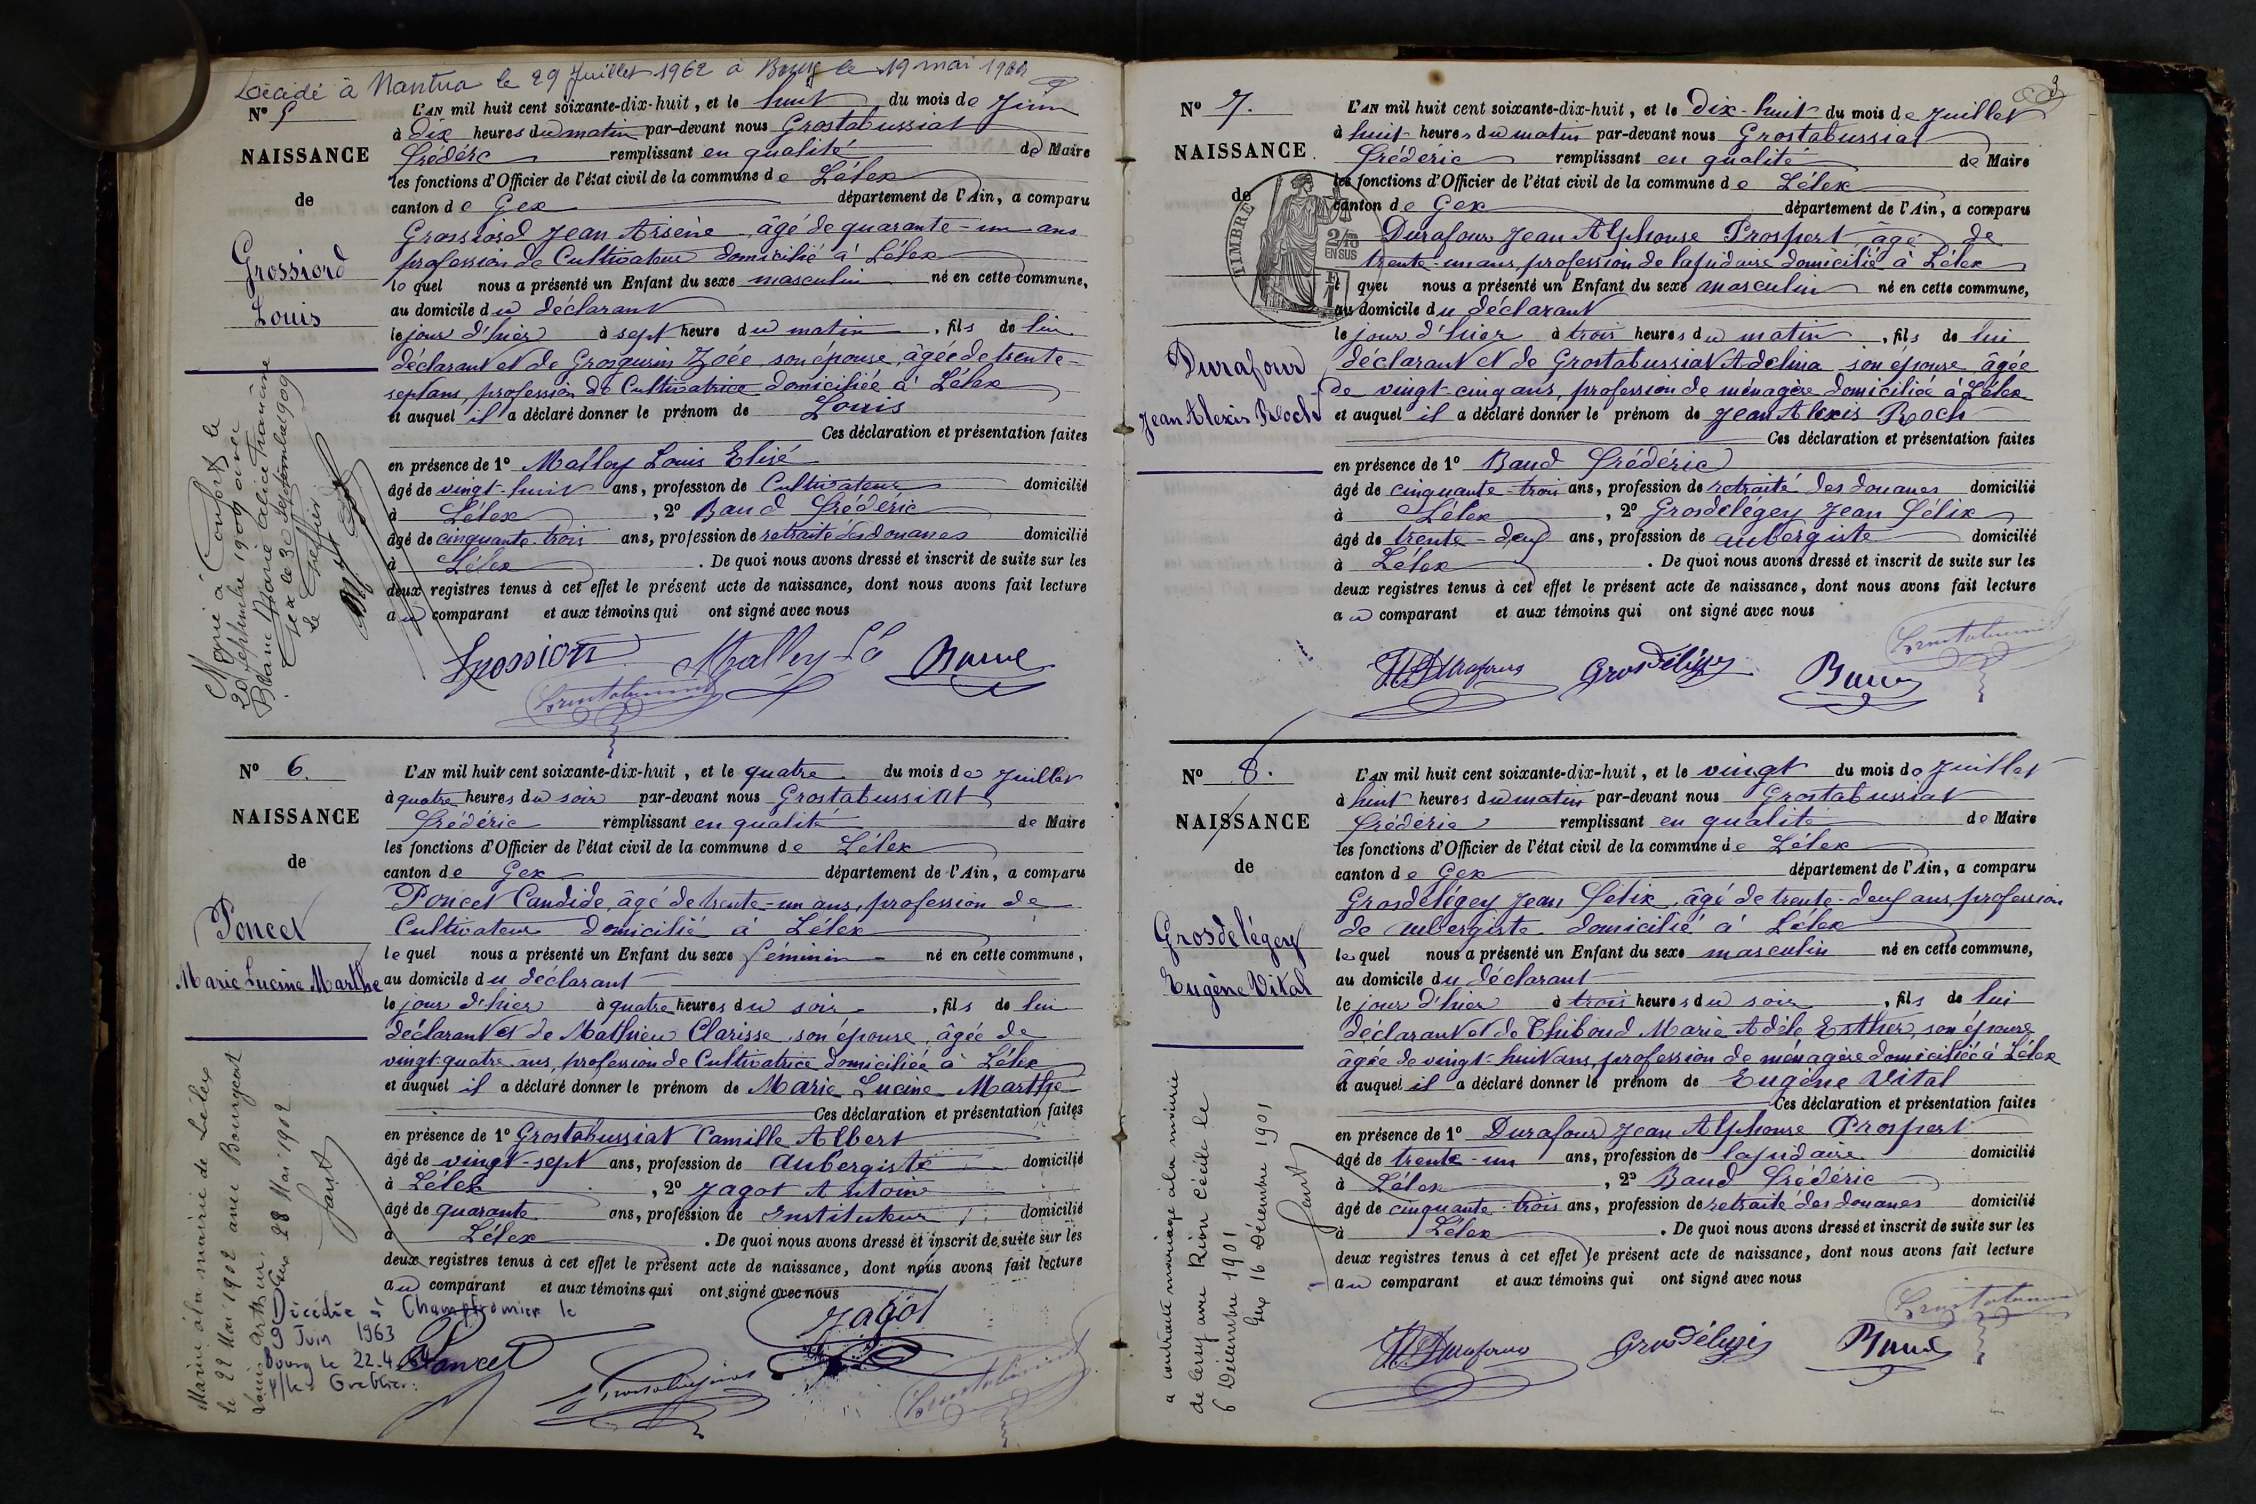 Décédé à Nantua le 29 Juillet 1962 à Bourg le 19 mai
N° 5
NAISSANCE
de
Grossiord
Louis
L'AN mil huit cent soixante-dix-huit, et le huit du mois de Juin
à dix heures du matin par-devant nous Grostabussiat
Frédéric remplissant en qualité de Maire
les fonctions d'Officier de l'état civil de la commune de Lélex
canton de Gex département de l'Ain, a comparu
Grossiord Jean Arsène âgé de quarante-un ans
profession de Cultivateur domicilié à Lélex
lequel nous a présenté un Enfant du sexe masculin né en cette commune,
au domicile du déclarant
le jour d'hier à sept heure du matin, fils de lui
déclarant et de Grosgurin Zoée son épouse, âgée de trente-
sept ans, profession de Cultivatrice domiciliée à Lélex
et auquel il a déclaré donner le prénom de Louis
Ces déclaration et présentation faites
en présence de 1° Malloy Louis Elisé
âgé de vingt-huit ans, profession de Cultivateur domicilié
à Lélex, 2° Baud Frédéric
âgé de cinquante-trois ans, profession de retraité des douanes domicilié
à Lélex. De quoi nous avons dressé et inscrit de suite sur les
deux registres tenus à cet effet le présent acte de naissance, dont nous avons fait lecture
au comparant et aux témoins qui ont signé avec nous
Marié à Confort le
20 septembre 1909 avec
Blanc Marie Alice Francine
Gex le 30 septembre 1909
Le Greffier
Grossiord Malley Ls Baud
N° 6.
NAISSANCE
de
Poncet
Marie Lucine Marthe
L'AN mil huit cent soixante-dix-huit, et le quatre du mois de Juillet
à quatre heures du soir par-devant nous Grostabussiat
Frédéric remplissant en qualité de Maire
les fonctions d'Officier de l'état civil de la commune de Lélex
canton de Gex département de l'Ain, a comparu
Poncet Candide, âgé de trente-un ans, profession de
Cultivateur domicilié à Lélex
lequel nous a présenté un Enfant du sexe féminin né en cette commune,
au domicile du déclarant
le jour d'hier à quatre heures du soir, fils de lui
déclarant et de Mathieu Clarisse son épouse, âgée de
vingt-quatre ans, profession de Cultivatrice domiciliée à Lélex
et auquel il a déclaré donner le prénom de Marie Lucine Marthe
Ces déclaration et présentation faites
en présence de 1° Grostabussiat Camille Albert
âgé de vingt-sept ans, profession de aubergiste domicilié
à Lélex, 2° Jagot Antoine
âgé de quarante ans, profession de Instituteur domicilié
à Lélex. De quoi nous avons dressé et inscrit de suite sur les
deux registres tenus à cet effet le présent acte de naissance, dont nous avons fait lecture
au comparant et aux témoins qui ont signé avec nous
Mariée à la mairie de Lélex
le 22 Mai 1902 avec Bourgeat
Louis Arthur
Gex 28 Mai 1902
Décédée à Champfromier le
9 Juin 1963
Bourg le 22.4.
P/Le Greffier:
Poncet Jagot
N° 7.
NAISSANCE
de
TIMBRE
2/10 EN SUS
Durafour
Jean Alexis Roch
L'AN mil huit cent soixante-dix-huit, et le dix-huit du mois de Juillet
à huit heures du matin par-devant nous Grostabussiat
Frédéric remplissant en qualité de Maire
les fonctions d'Officier de l'état civil de la commune de Lélex
canton de Gex département de l'Ain, a comparu
Durafour Jean Alphonse Prospert âgé de
trente-un ans, profession de lapidaire domicilié à Lélex
quel nous a présenté un Enfant du sexe masculin né en cette commune,
au domicile du déclarant
le jour d'hier à trois heures du matin, fils de lui
déclarant et de Grostabussiat Adelina son épouse âgée
de vingt-cinq ans, profession de ménagère domiciliée à Lélex
et auquel il a déclaré donner le prénom de Jean Alexis Roch
Ces déclaration et présentation faites
en présence de 1° Baud Frédéric
âgé de cinquante-trois ans, profession de retraité des douanes domicilié
à Lélex, 2° Grosdelégey Jean Félix
âgé de trente-deux ans, profession de aubergiste domicilié
à Lélex. De quoi nous avons dressé et inscrit de suite sur les
deux registres tenus à cet effet le présent acte de naissance, dont nous avons fait lecture
au comparant et aux témoins qui ont signé avec nous
Durafour Grosdélégey Baud
N° 8.
NAISSANCE
de
Grosdelégey
Eugène Vital
L'AN mil huit cent soixante-dix-huit, et le vingt du mois de Juillet
à huit heures du matin par-devant nous Grostabussiat
Frédéric remplissant en qualité de Maire
les fonctions d'Officier de l'état civil de la commune de Lélex
canton de Gex département de l'Ain, a comparu
Grosdelégey Jean Félix, âgé de trente-deux ans profession
de aubergiste domicilié à Lélex
lequel nous a présenté un Enfant du sexe masculin né en cette commune,
au domicile du déclarant
le jour d'hier à trois heures du soir, fils de lui
déclarant et de Thiboud Marie Adèle Esther, son épouse
âgée de vingt-huit ans, profession de ménagère domiciliée à Lélex
et auquel il a déclaré donner le prénom de Eugène Vital
Ces déclaration et présentation faites
en présence de 1° Durafour Jean Alphonse Prospert
âgé de trente-un ans, profession de lapidaire domicilié
à Lélex, 2° Baud Frédéric
âgé de cinquante-trois ans, profession de retraité des douanes domicilié
à Lélex. De quoi nous avons dressé et inscrit de suite sur les
deux registres tenus à cet effet le présent acte de naissance, dont nous avons fait lecture
au comparant et aux témoins qui ont signé avec nous
a contracté mariage à la mairie
de Lercy avec Rion Cécile le
6 Décembre 1901
Gex 16 Décembre 1901
Durafour Grosdélégey Baud